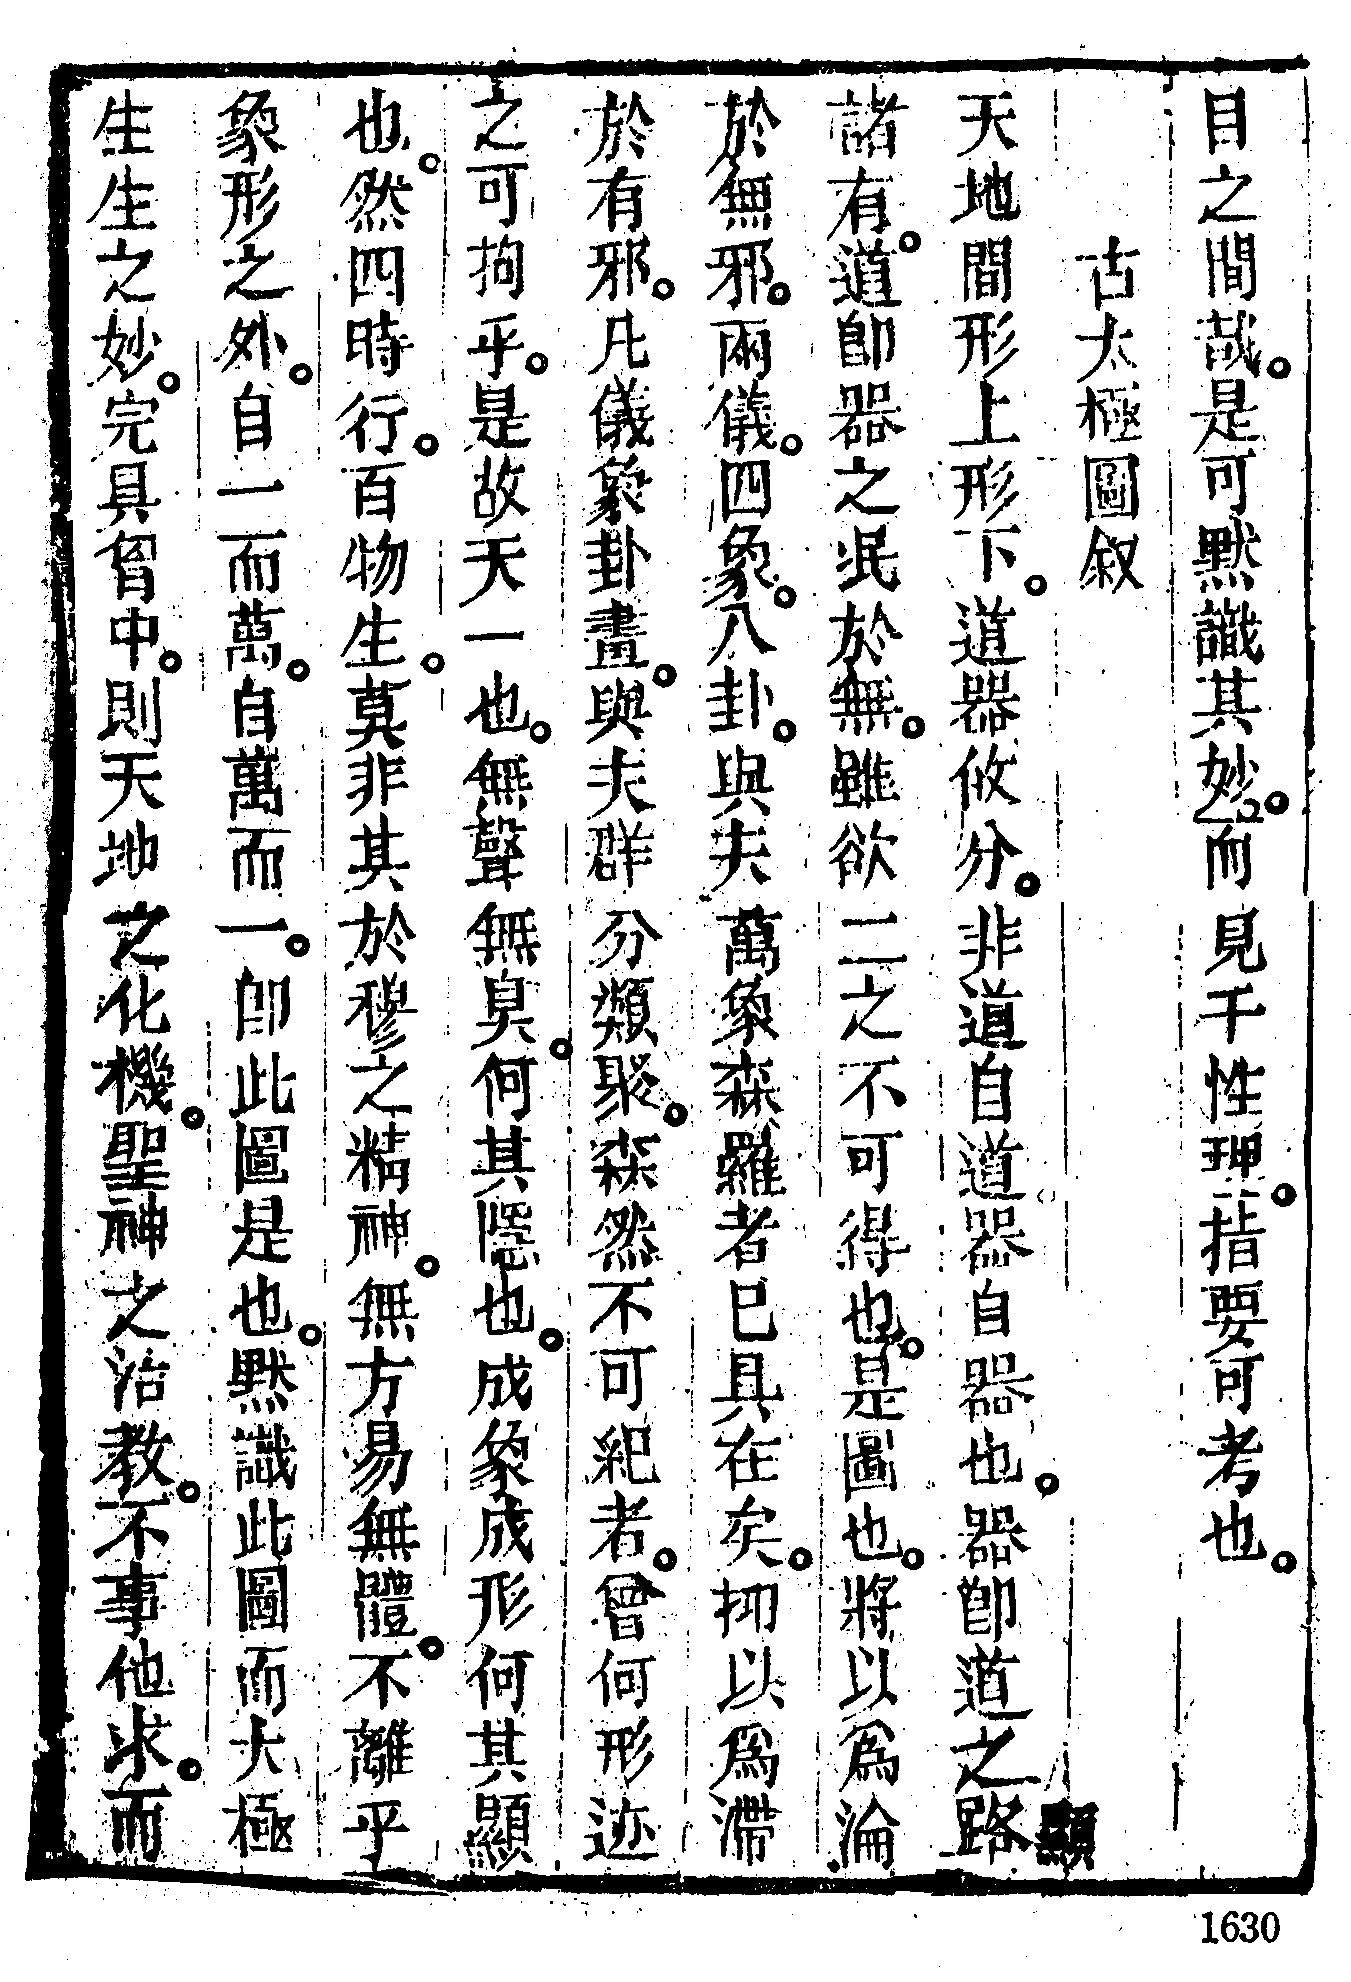 目之間哉。是可默識其妙。而見千性理。指要可考也。
古太極圖叙
天地間形上形下。道器攸分。非道自道器自器也。器即道之路顯
諸有。道即器之泯於無。雖欲二之不可得也。是圖也。將以為淪
於無邪。兩儀。四象。八卦。與夫萬象森羅者已具在矣。抑以為滯
於有邪。凡儀象卦畫。與夫群分類聚。森然不可紀者。曾何形迹
之可拘乎。是故天一也。無聲無臭。何其隱也。成象成形何其顯
也。然四時行。百物生。莫非其於穆之精神。無方易無體。不離乎
象形之外。自一而萬。自萬而一。即此圖是也。默識此圖而太極
生生之妙。完具胷中。則天地之化機。聖神之治教。不事他求。而
1630